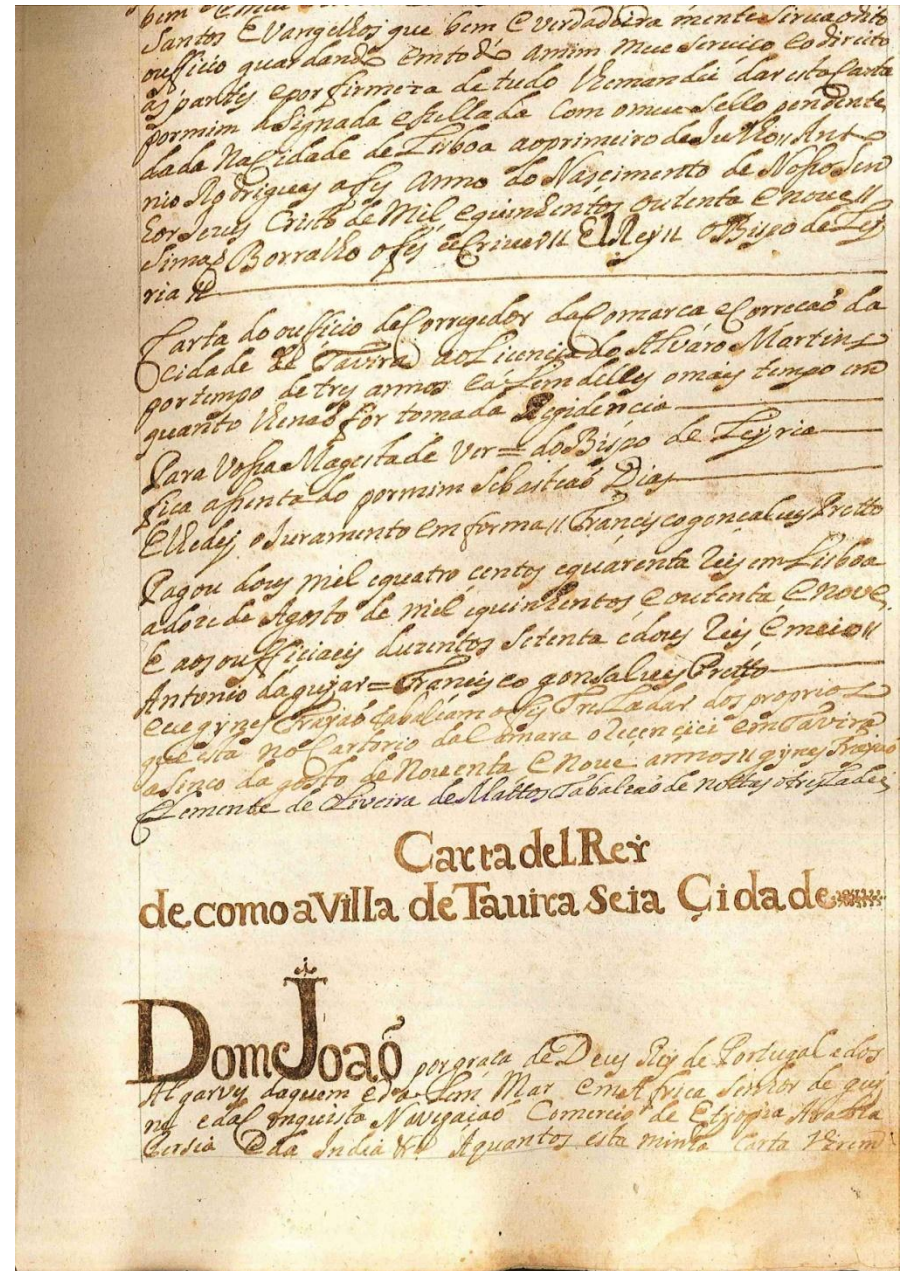 bem
Santos EVangellos que bem Everdadeira mente Sirua odito
oufficio guardando Emtodo amim meu Seruico Eodireito
ás partes eporfirmeza de tudo lhemandei dar esta Carta
pormim aSignada eSellada Com omeu Sello pendente
dada NaCidade de Lisboa aoprimeiro de Julho,, Anto
nio Rodrigues afes Anno do Nascimento de Nosso Sen
hor Jesus Cristo de Mil equinhentos outenta Enove,,
Simaõ Borralho ofes esCriuer,, ElRey,, oBispo de Ley
ria
Carta do oufficio deCorregedor daComarca eCorreçaõ da
Cidade de Tavira aoLicenciado Alváro Martins
portempo de tres annos Ealemdelles omais tempo em
quanto lhenaõ for tomada Regidencia
Para Vossa Magestade Ver= doBispo de Leyria
fica asentado pormim Sebastiaõ Dias
Elhedei oJuramento em forma,, Francisco goncalues Pretto
Pagou dous mil equatro centos equarenta Reis em Lisboa
adoze de Agosto de mil equinhentos Eoutenta Enove,
E aos oufficiaeis duzentos Setenta edous Reis Emeio,,
Antonio daguiar= Francisco gonsalues Pretto
eue gynes Frajaõ tabaliam ofis Treladar dos proprios
que está no Cartorio daCamara em Tavira
asinco dagosto de Noventa Enove annos,, gynes Frajaõ
Clemente de Oliveira de Mattos Tabaliaõ de nottas otreladei
Carta del Rey
de como a Villa de Tauira seia Çidade
Dom Joaõ por graca de Deus Rey de Portugal edos
Algarvy daquem eda lem Mar EmAfrica Senhor de gui
ne edaConquista Navegaçaõ Comercio de Etiopia Arabia
Persia Eda India &ª Aquantos esta minha Carta Virem